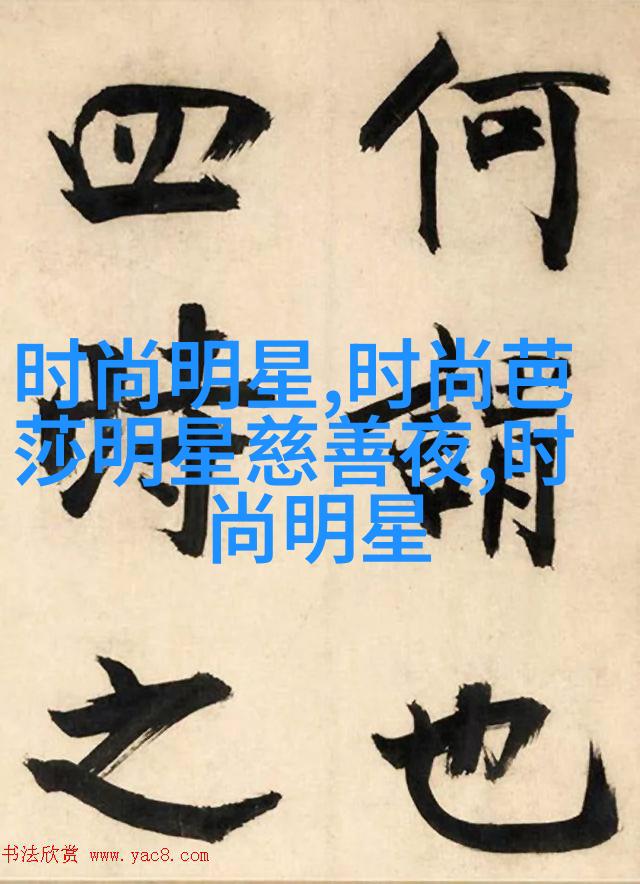 何謂也
四時之
时尚明星,时尚芭
莎明星慈善夜,时
尚明星
书法欣赏 www.yac8.com